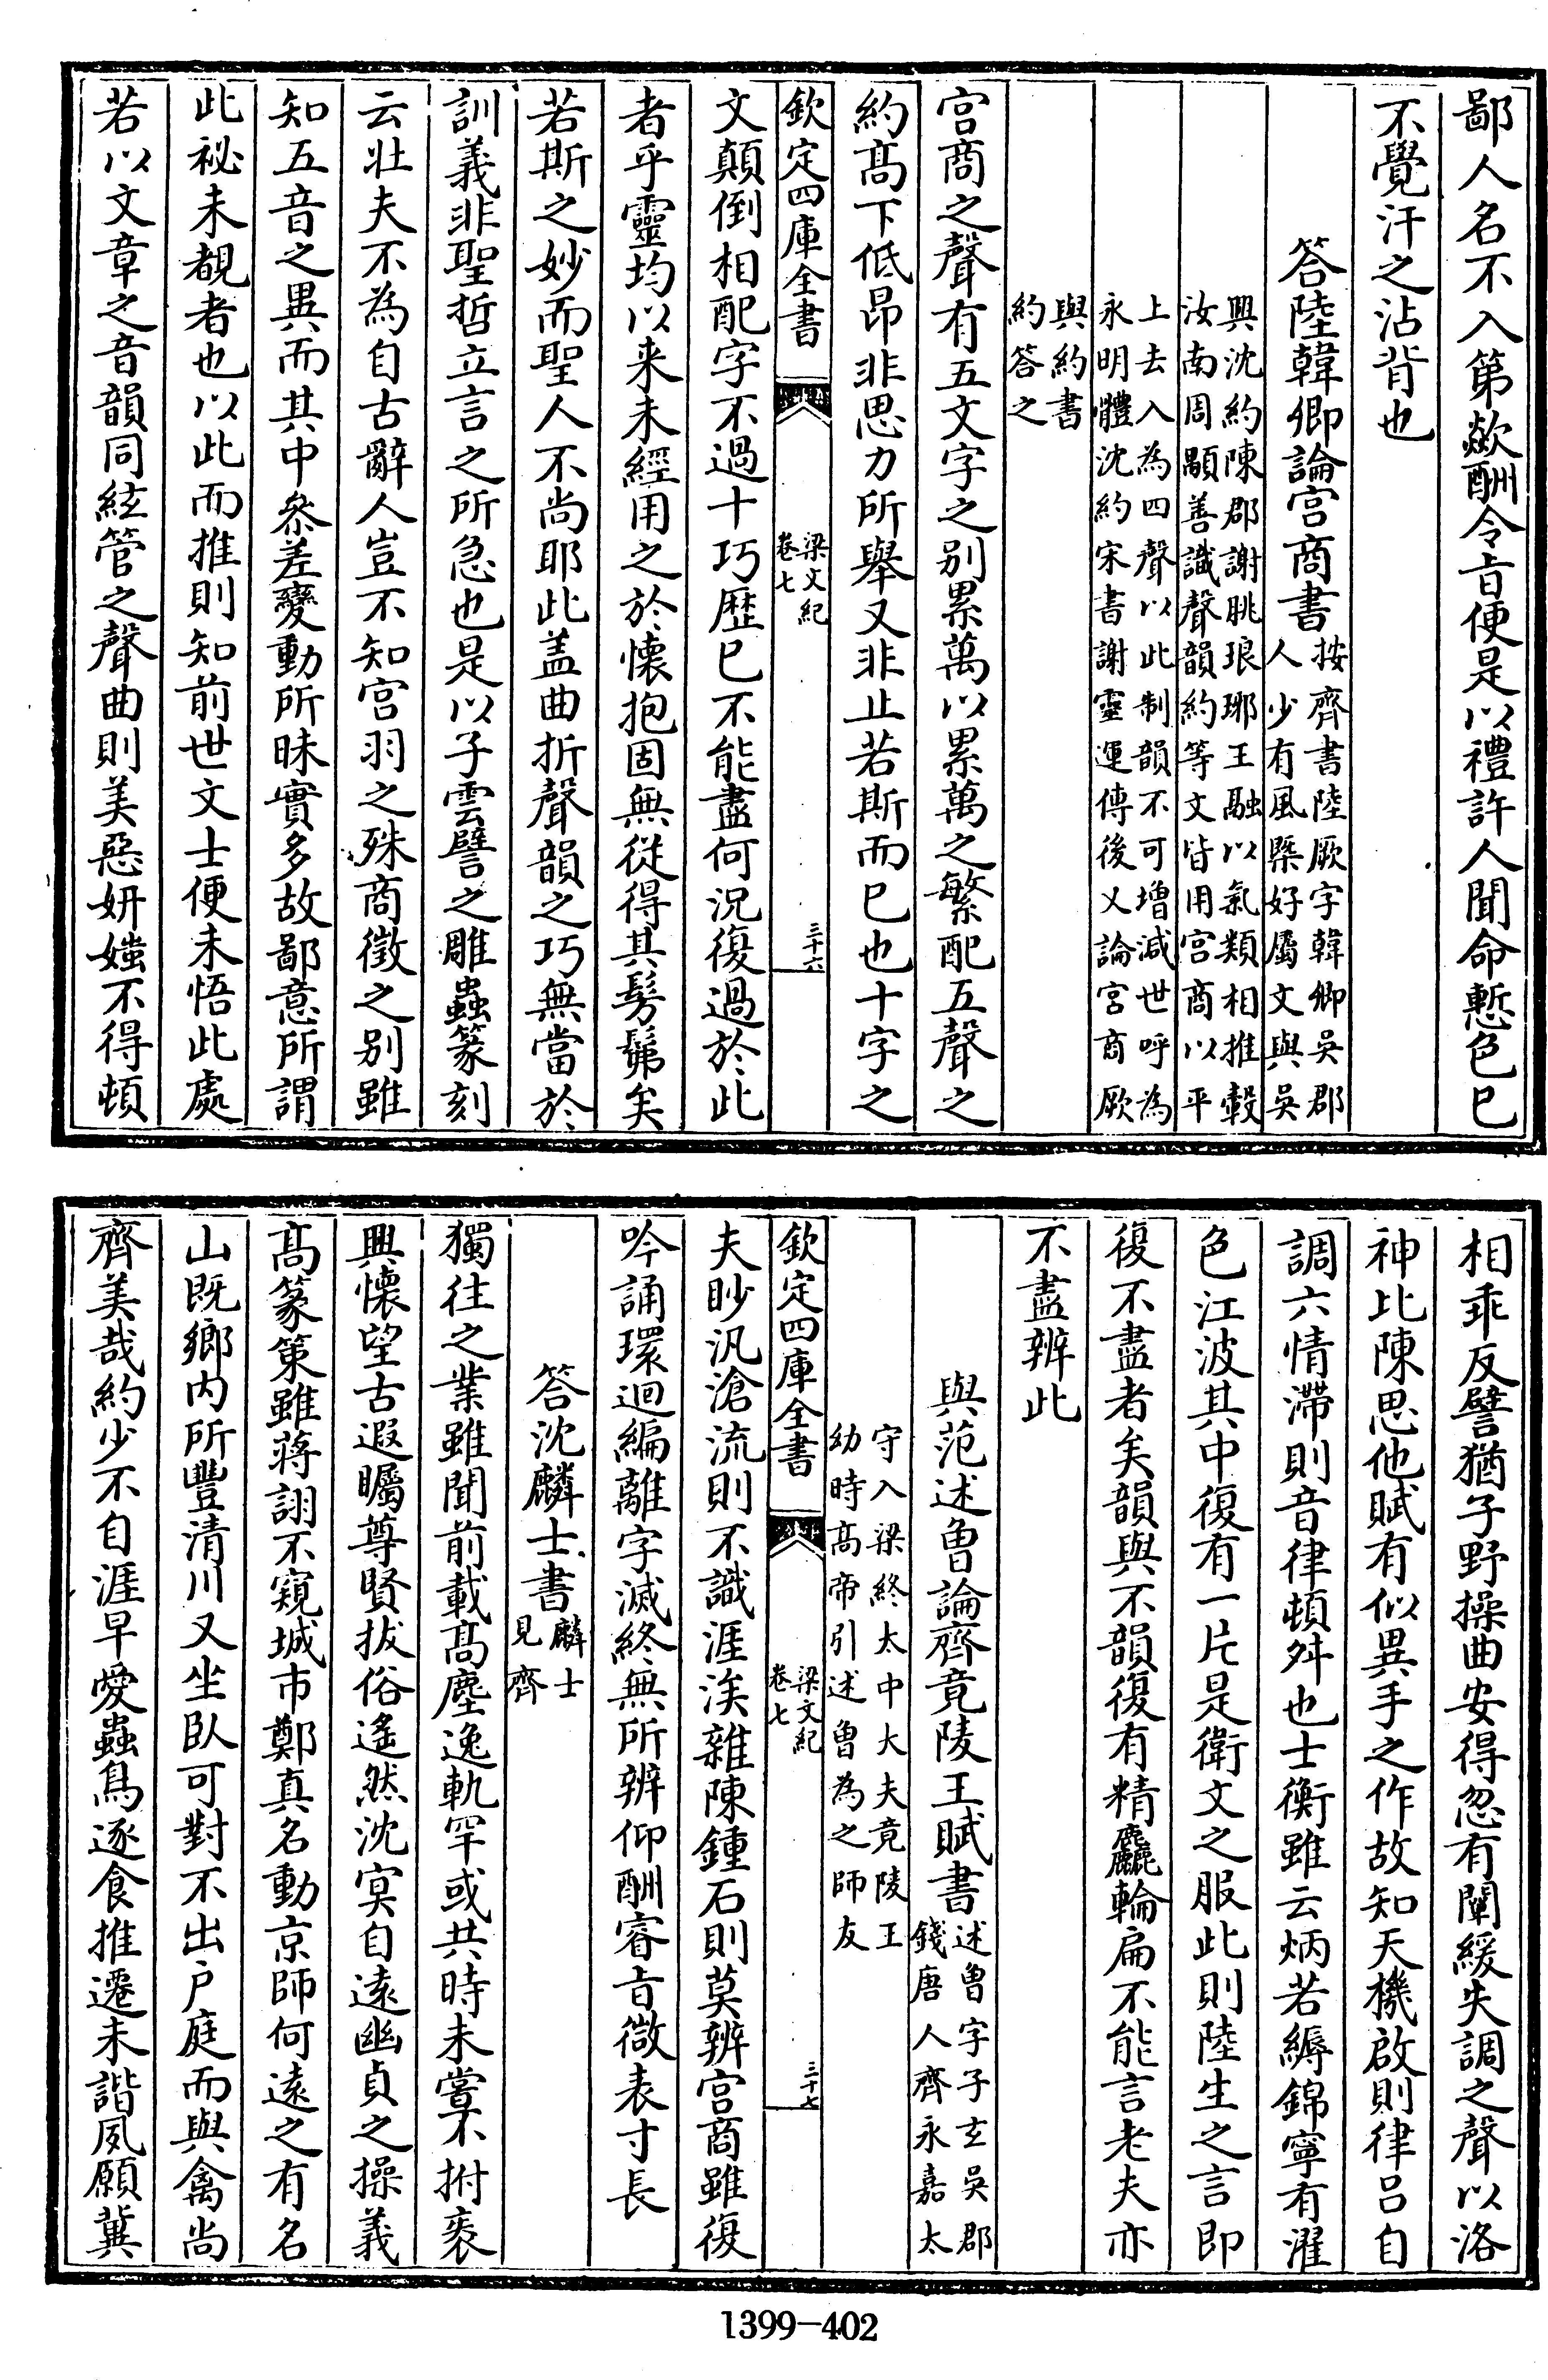 鄙人名不入第歘酬令㫖便是以禮許人聞命慙色已
不覺汗之沾背也
答陸韓卿論宫商書
按齊書陸厥字韓卿吳郡
人少有風槩好屬文與吳
興沈約陳郡謝朓琅琊王融以氣類相推轂
汝南周顒善識聲韻約等文皆用宫商以平
上去入為四聲以此制韻不可增減世呼為
永明體沈約宋書謝靈運傳後又論宫商厥
與約書
約答之
宫商之聲有五文字之别累萬以累萬之繁配五聲之
約髙下低昂非思力所舉又非止若斯而已也十字之
欽定四庫全書
梁文紀
卷七
三十六
文顛倒相配字不過十巧歴已不能盡何況復過於此
者乎靈均以来未經用之於懐抱固無從得其髣髴矣
若斯之妙而聖人不尚耶此盖曲折聲韻之巧無當於
訓義非聖哲立言之所急也是以子雲譬之雕蟲篆刻
云壯夫不為自古辭人豈不知宫羽之殊商徵之别雖
知五音之異而其中參差變動所昧實多故鄙意所謂
此祕未覩者也以此而推則知前世文士便未悟此處
若以文章之音韻同絃管之聲曲則美惡妍媸不得頓
相乖反譬猶子野操曲安得忽有闡緩失調之聲以洛
神比陳思他賦有似異手之作故知天機啟則律吕自
調六情滯則音律頓舛也士衡雖云炳若縟錦寧有濯
色江波其中復有一片是衛文之服此則陸生之言即
復不盡者矣韻與不韻復有精麤輪扁不能言老夫亦
不盡辨此
與范述曽論齊竟陵王賦書
述曽字子玄吳郡
錢唐人齊永嘉太
守入梁終太中大夫竟陵王
幼時髙帝引述曽為之師友
欽定四庫全書
梁文紀
卷七
三十七
夫眇汎滄流則不識涯涘雜陳鍾石則莫辨宫商雖復
吟誦環迴編離字滅終無所辨仰酬睿㫖微表寸長
答沈麟士書
麟士
見齊
獨往之業雖聞前載髙塵逸軌罕或共時未嘗不拊衷
興懐望古遐矚尊賢拔俗遙然沈㝠自遠幽貞之操義
髙篆䇿雖蒋詡不窺城市鄭真名動京師何遠之有名
山既鄉内所豐清川又坐臥可對不出户庭而與禽尚
齊美哉約少不自涯早愛蟲鳥逐食推遷未諧夙願冀
1399-402